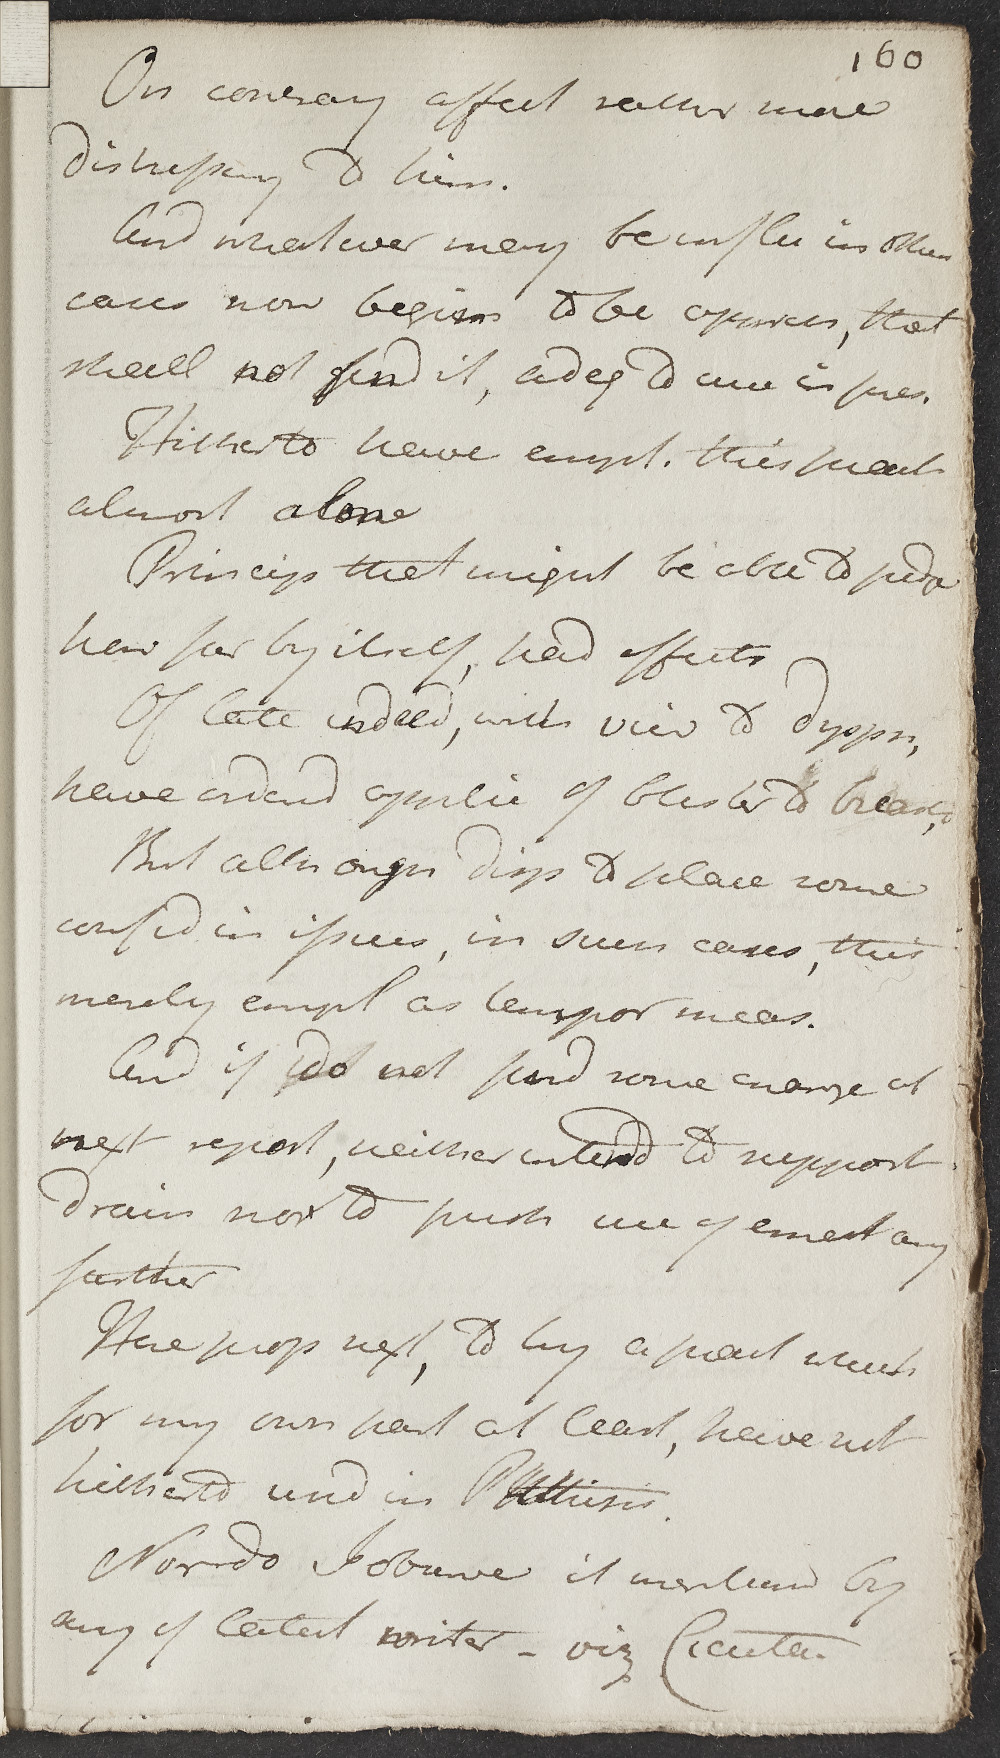 160
On contrary affect rather more
distressing to him.
And whatever may be usefu in other
cases now begin to be appreh, that
shall not find it, adeq to cure in pres.
Hitherto have empl. this pract
almost alone
Princip that might be able to judge
how far by itself, had effects
Of late indeed, with view to dyspn,
have ordered applic of blister to breast,
But although disp to place some
confid in issues, in such cases, this
merely empl as tempor meas.
And if do not find some change at
next report, neither intend to support
drain nor to push use of emet any
further
Have prop next, to try a pract which
for my own part at least, have not
hitherto used in Phthisis.
Nor do I observe it mentioned by
any of latest writer - viz Cicuta